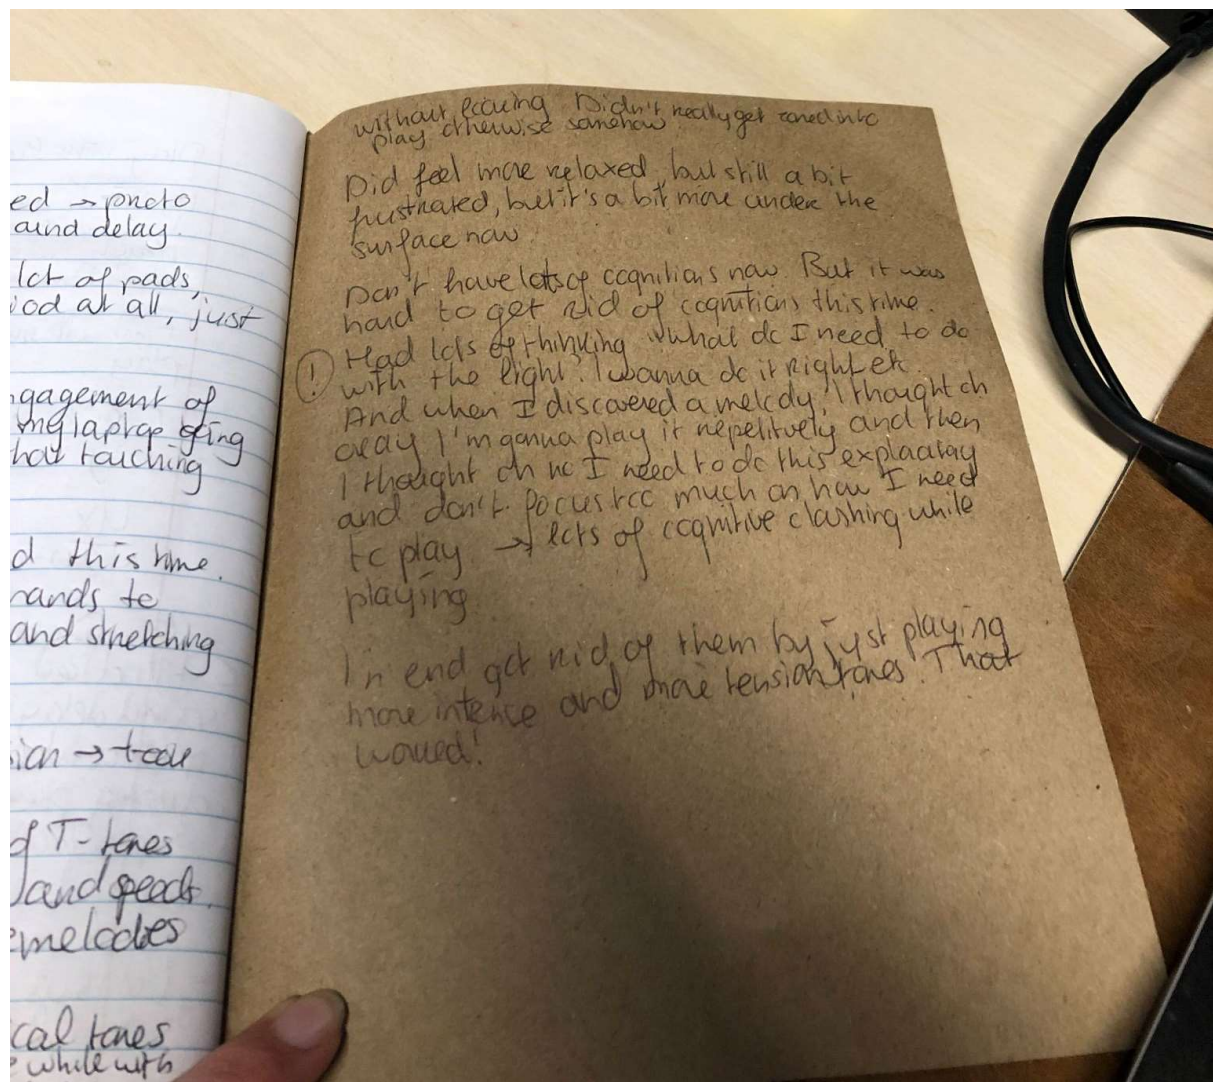 ed → photo
and delay.
lot of pads,
ood at all, just
gagement of
my laptop going
hat touching
d this time.
hands to
and stretching
ion → took
of T-tones
and speeds.
melodies
cal tones
while with
without leaving. Didn't really get zoned into
play otherwise somehow.
Did feel more relaxed, but still a bit
frustrated, but it's a bit more under the
surface now.
Don't have lots of cognitions now. But it was
hard to get rid of cognitions this time.
! Had lots of thinking "what do I need to do
with the light. I wanna do it right etc.
And when I discovered a melody, I thought oh
okay I'm gonna play it repetitively and then
I thought oh no I need to do this exploratory
and don't focus too much on how I need
to play → lots of cognitive clashing while
playing.
In end got rid of them by just playing
more intense and more tension tones. That
worked!